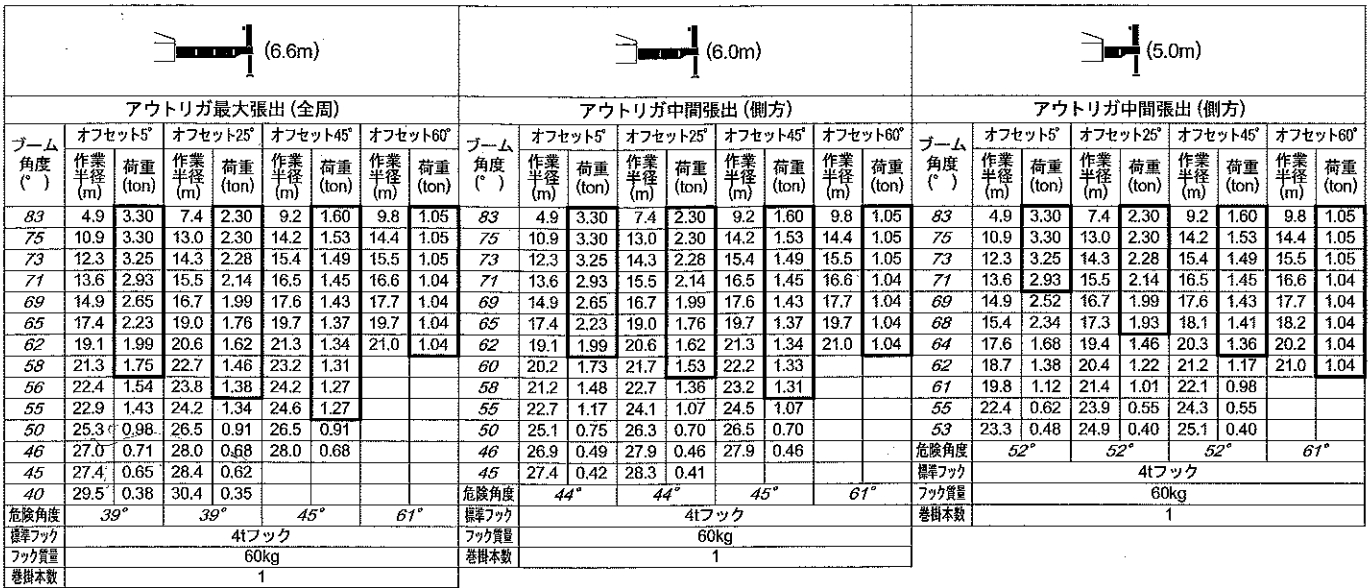 (6.6m)
アウトリガ最大張出(全周)
ブーム角度(°) オフセット5° オフセット25° オフセット45° オフセット60°
作業半径(m) 荷重(ton) 作業半径(m) 荷重(ton) 作業半径(m) 荷重(ton) 作業半径(m) 荷重(ton)
83 4.9 3.30 7.4 2.30 9.2 1.60 9.8 1.05
75 10.9 3.30 13.0 2.30 14.2 1.53 14.4 1.05
73 12.3 3.25 14.3 2.28 15.4 1.49 15.5 1.05
71 13.6 2.93 15.5 2.14 16.5 1.45 16.6 1.04
69 14.9 2.65 16.7 1.99 17.6 1.43 17.7 1.04
65 17.4 2.23 19.0 1.76 19.7 1.37 19.7 1.04
62 19.1 1.99 20.6 1.62 21.3 1.34 21.0 1.04
58 21.3 1.75 22.7 1.46 23.2 1.31
56 22.4 1.54 23.8 1.38 24.2 1.27
55 22.9 1.43 24.2 1.34 24.6 1.27
50 25.3 0.98 26.5 0.91 26.5 0.91
46 27.0 0.71 28.0 0.68 28.0 0.68
45 27.4 0.65 28.4 0.62
40 29.5 0.38 30.4 0.35
危険角度 39° 39° 45° 61°
標準フック 4tフック
フック質量 60kg
巻掛本数 1
(6.0m)
アウトリガ中間張出(側方)
ブーム角度(°) オフセット5° オフセット25° オフセット45° オフセット60°
作業半径(m) 荷重(ton) 作業半径(m) 荷重(ton) 作業半径(m) 荷重(ton) 作業半径(m) 荷重(ton)
83 4.9 3.30 7.4 2.30 9.2 1.60 9.8 1.05
75 10.9 3.30 13.0 2.30 14.2 1.53 14.4 1.05
73 12.3 3.25 14.3 2.28 15.4 1.49 15.5 1.05
71 13.6 2.93 15.5 2.14 16.5 1.45 16.6 1.04
69 14.9 2.65 16.7 1.99 17.6 1.43 17.7 1.04
65 17.4 2.23 19.0 1.76 19.7 1.37 19.7 1.04
62 19.1 1.99 20.6 1.62 21.3 1.34 21.0 1.04
60 20.2 1.73 21.7 1.53 22.2 1.33
58 21.2 1.48 22.7 1.36 23.2 1.31
55 22.7 1.17 24.1 1.07 24.5 1.07
50 25.1 0.75 26.3 0.70 26.5 0.70
46 26.9 0.49 27.9 0.46 27.9 0.46
45 27.4 0.42 28.3 0.41
危険角度 44° 44° 45° 61°
標準フック 4tフック
フック質量 60kg
巻掛本数 1
(5.0m)
アウトリガ中間張出(側方)
ブーム角度(°) オフセット5° オフセット25° オフセット45° オフセット60°
作業半径(m) 荷重(ton) 作業半径(m) 荷重(ton) 作業半径(m) 荷重(ton) 作業半径(m) 荷重(ton)
83 4.9 3.30 7.4 2.30 9.2 1.60 9.8 1.05
75 10.9 3.30 13.0 2.30 14.2 1.53 14.4 1.05
73 12.3 3.25 14.3 2.28 15.4 1.49 15.5 1.05
71 13.6 2.93 15.5 2.14 16.5 1.45 16.6 1.04
69 14.9 2.52 16.7 1.99 17.6 1.43 17.7 1.04
68 15.4 2.34 17.3 1.93 18.1 1.41 18.2 1.04
64 17.6 1.68 19.4 1.46 20.3 1.36 20.2 1.04
62 18.7 1.38 20.4 1.22 21.2 1.17 21.0 1.04
61 19.8 1.12 21.4 1.01 22.1 0.98
55 22.4 0.62 23.9 0.55 24.3 0.55
53 23.3 0.48 24.9 0.40 25.1 0.40
危険角度 52° 52° 52° 61°
標準フック 4tフック
フック質量 60kg
巻掛本数 1